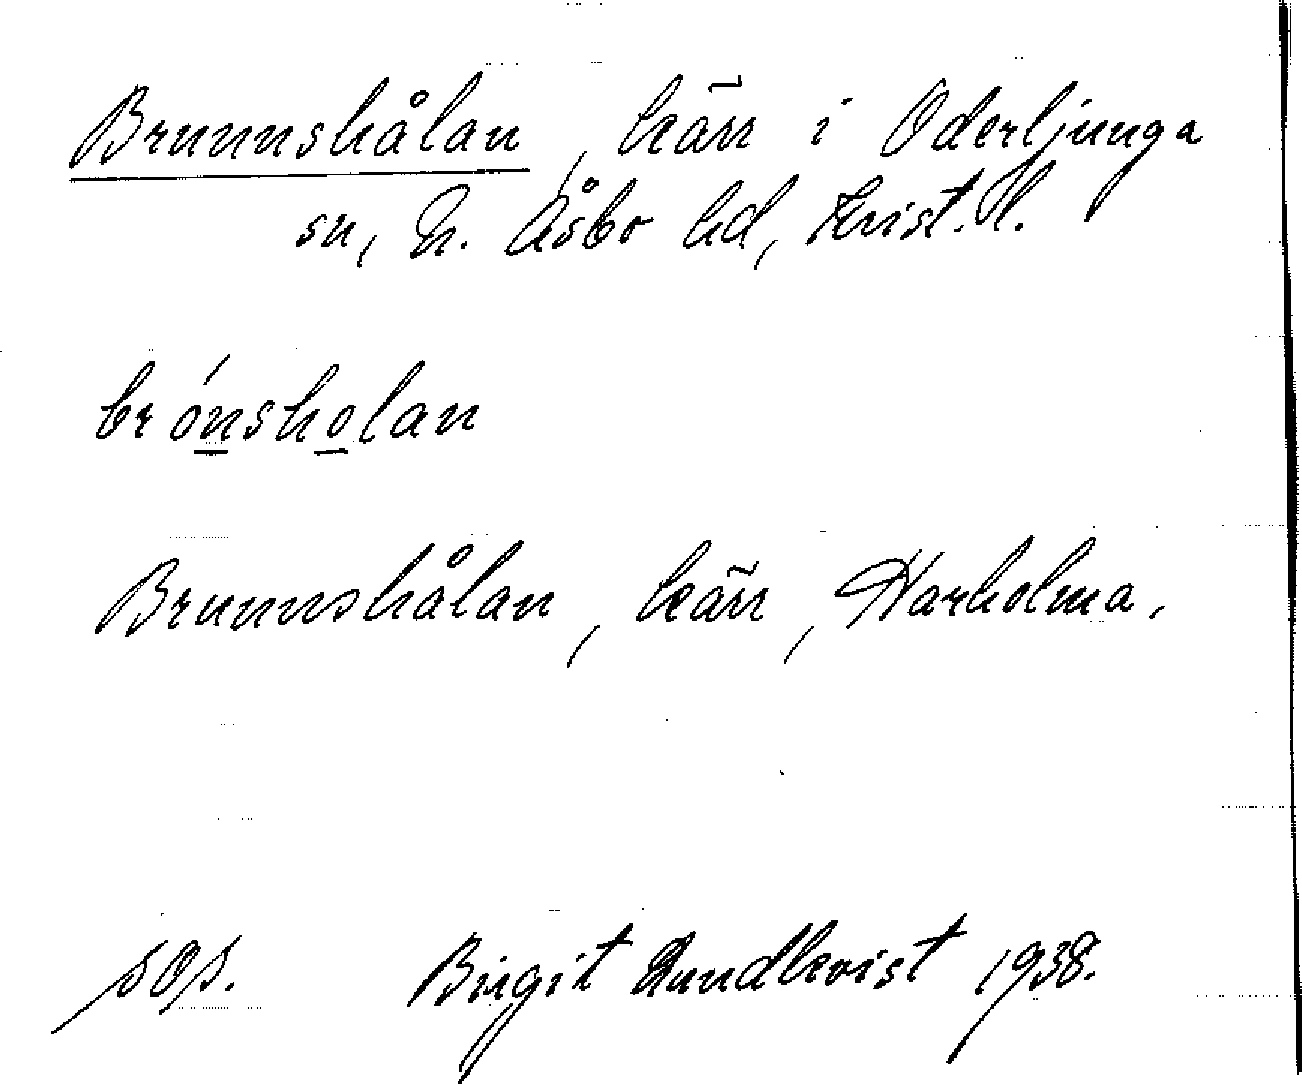 Brunnshålan, kärr i Oderljunga
sn, N. Åsbo hd, Krist. l.
brónsholan
Brunnshålan, kärr, Harholma.
søs. Birgit Lundkvist 1938.